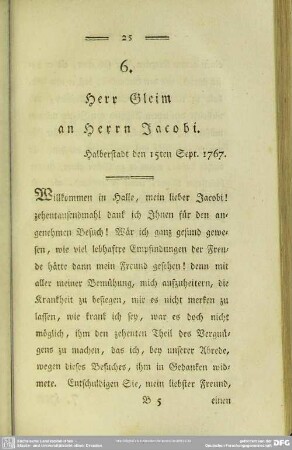 25
6.
Herr Gleim
an Herrn Jacobi.
Halberstadt den 15ten Sept. 1767.
Willkommen in Halle, mein lieber Jacobi!
zehentausendmahl dank ich Ihnen für den an-
genehmen Besuch! Wär ich ganz gesund gewe-
sen, wie viel lebhaftre Empfindungen der Freu-
de hätte dann mein Freund gesehen! denn mit
aller meiner Bemühung, mich aufzuheitern, die
Krankheit zu besiegen, mir es nicht merken zu
lassen, wie krank ich sey, war es doch nicht
möglich, ihm den zehenten Theil des Vergnü-
gens zu machen, das ich, bey unserer Abrede,
wegen dieses Besuches, ihm in Gedanken wid-
mete. Entschuldigen Sie, mein liebster Freund,
B 5 einen
DFG